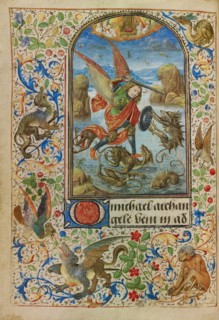 Michael archan
gele veni in ad